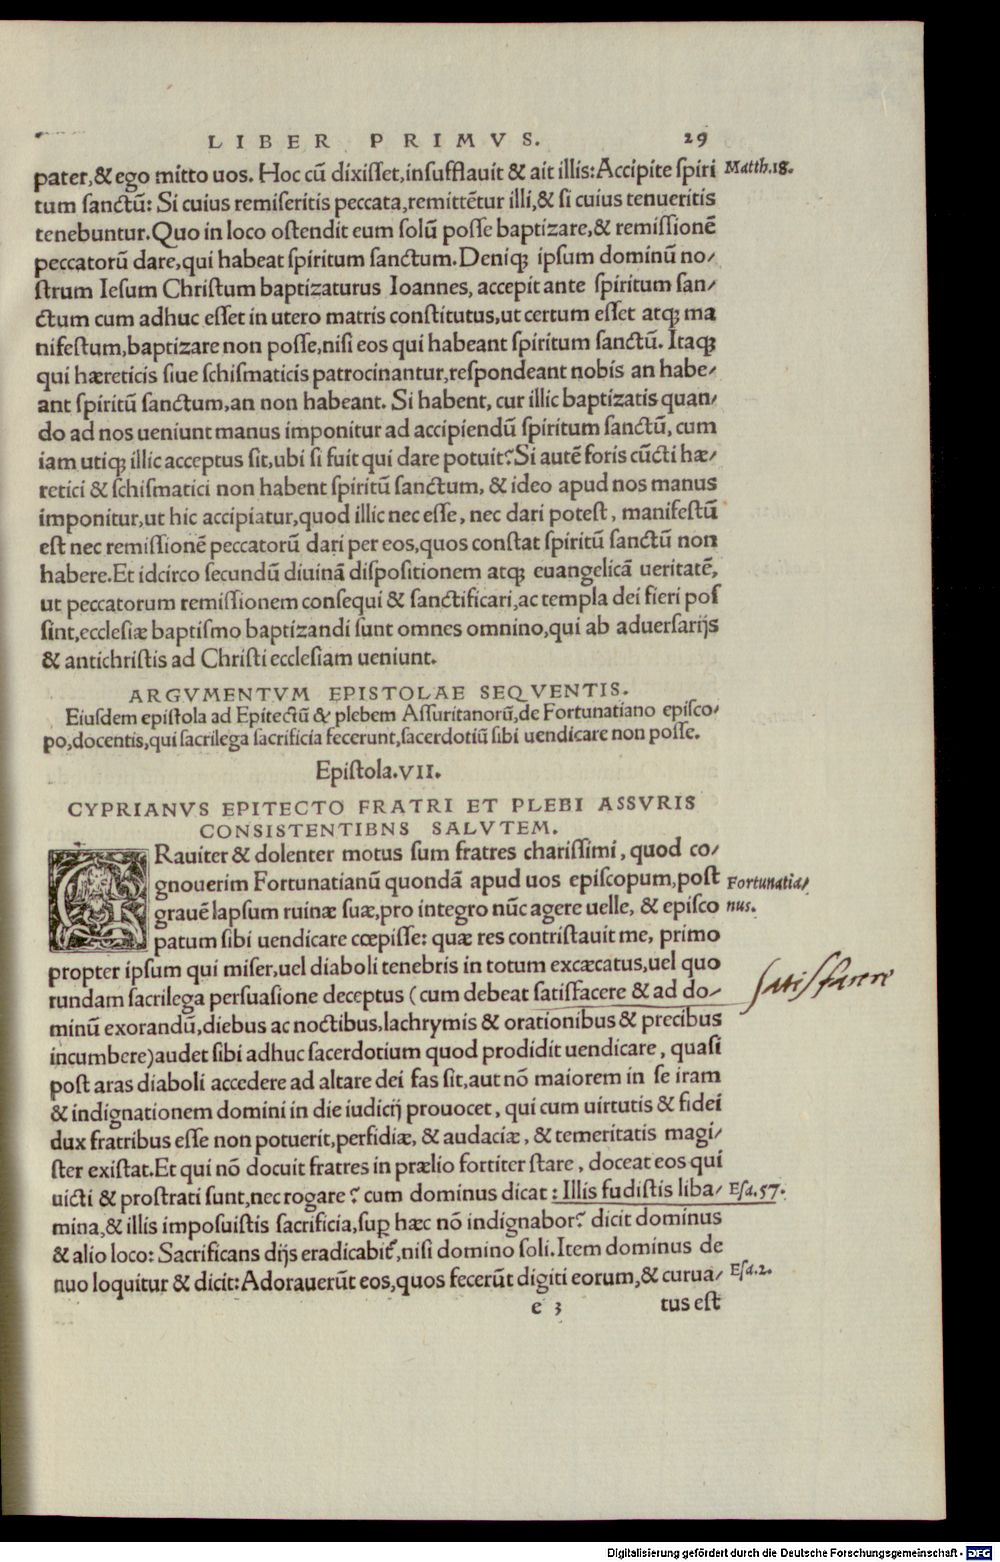 LIBER PRIMVS. 29
pater,& ego mitto uos. Hoc cū dixiſſet,inſufflauit & ait illis:Accipite ſpiri Matth.18.
tum ſanctū: Si cuius remiſeritis peccata,remittētur illi,& ſi cuius tenueritis
tenebuntur.Quo in loco oſtendit eum ſolū poſſe baptizare,& remiſſionē
peccatorū dare,qui habeat ſpiritum ſanctum.Deniqꝫ ipſum dominū no/
ſtrum Ieſum Chriſtum baptizaturus Ioannes, accepit ante ſpiritum ſan/
ctum cum adhuc eſſet in utero matris conſtitutus,ut certum eſſet atqꝫ ma
nifeſtum,baptizare non poſſe,niſi eos qui habeant ſpiritum ſanctū. Itaqꝫ
qui hæreticis ſiue ſchiſmaticis patrocinantur,reſpondeant nobis an habe/
ant ſpiritū ſanctum,an non habeant. Si habent, cur illic baptizatis quan/
do ad nos ueniunt manus imponitur ad accipiendū ſpiritum ſanctū, cum
iam utiqꝫ illic acceptus ſit,ubi ſi fuit qui dare potuit? Si autē foris cūcti hæ/
retici & ſchiſmatici non habent ſpiritū ſanctum, & ideo apud nos manus
imponitur,ut hic accipiatur,quod illic nec eſſe, nec dari poteſt, manifeſtū
eſt nec remiſſionē peccatorū dari per eos,quos conſtat ſpiritū ſanctū non
habere.Et idcirco ſecundū diuinā diſpoſitionem atqꝫ euangelicā ueritatē,
ut peccatorum remiſſionem conſequi & ſanctificari,ac templa dei fieri poſ
ſint,eccleſiæ baptiſmo baptizandi ſunt omnes omnino,qui ab aduerſarijs
& antichriſtis ad Chriſti eccleſiam ueniunt.
ARGVMENTVM EPISTOLAE SEQVENTIS.
Eiuſdem epiſtola ad Epitectū & plebem Aſſuritanorū,de Fortunatiano epiſco/
po,docentis,qui ſacrilega ſacrificia fecerunt,ſacerdotiū ſibi uendicare non poſſe.
Epiſtola.VII.
CYPRIANVS EPITECTO FRATRI ET PLEBI ASSVRIS
CONSISTENTIBNS SALVTEM.
GRauiter & dolenter motus ſum fratres chariſſimi, quod co/
gnouerim Fortunatianū quondā apud uos epiſcopum,poſt Fortunatia/
grauē lapſum ruinæ ſuæ,pro integro nūc agere uelle, & epiſco nus.
patum ſibi uendicare cœpiſſe: quæ res contriſtauit me, primo
propter ipſum qui miſer,uel diaboli tenebris in totum excæcatus,uel quo
rundam ſacrilega perſuaſione deceptus (cum debeat ſatiſfacere & ad do/ ſatiſfacere
minū exorandū,diebus ac noctibus,lachrymis & orationibus & precibus
incumbere)audet ſibi adhuc ſacerdotium quod prodidit uendicare, quaſi
poſt aras diaboli accedere ad altare dei fas ſit,aut nō maiorem in ſe iram
& indignationem domini in die iudicij prouocet, qui cum uirtutis & fidei
dux fratribus eſſe non potuerit,perfidiæ, & audaciæ, & temeritatis magi/
ſter exiſtat.Et qui nō docuit fratres in prælio fortiter ſtare, doceat eos qui
uicti & proſtrati ſunt,nec rogare? cum dominus dicat: Illis fudiſtis liba/ Eſa.57.
mina,& illis impoſuiſtis ſacrificia,ſuꝑ hæc nō indignabor? dicit dominus
& alio loco: Sacrificans dijs eradicabit᷑,niſi domino ſoli.Item dominus de
nuo loquitur & dicit:Adorauerūt eos,quos fecerūt digiti eorum,& curua/ Eſa.2.
e 3 tus eſt
Digitalisierung gefördert durch die Deutsche Forschungsgemeinschaft - DFG